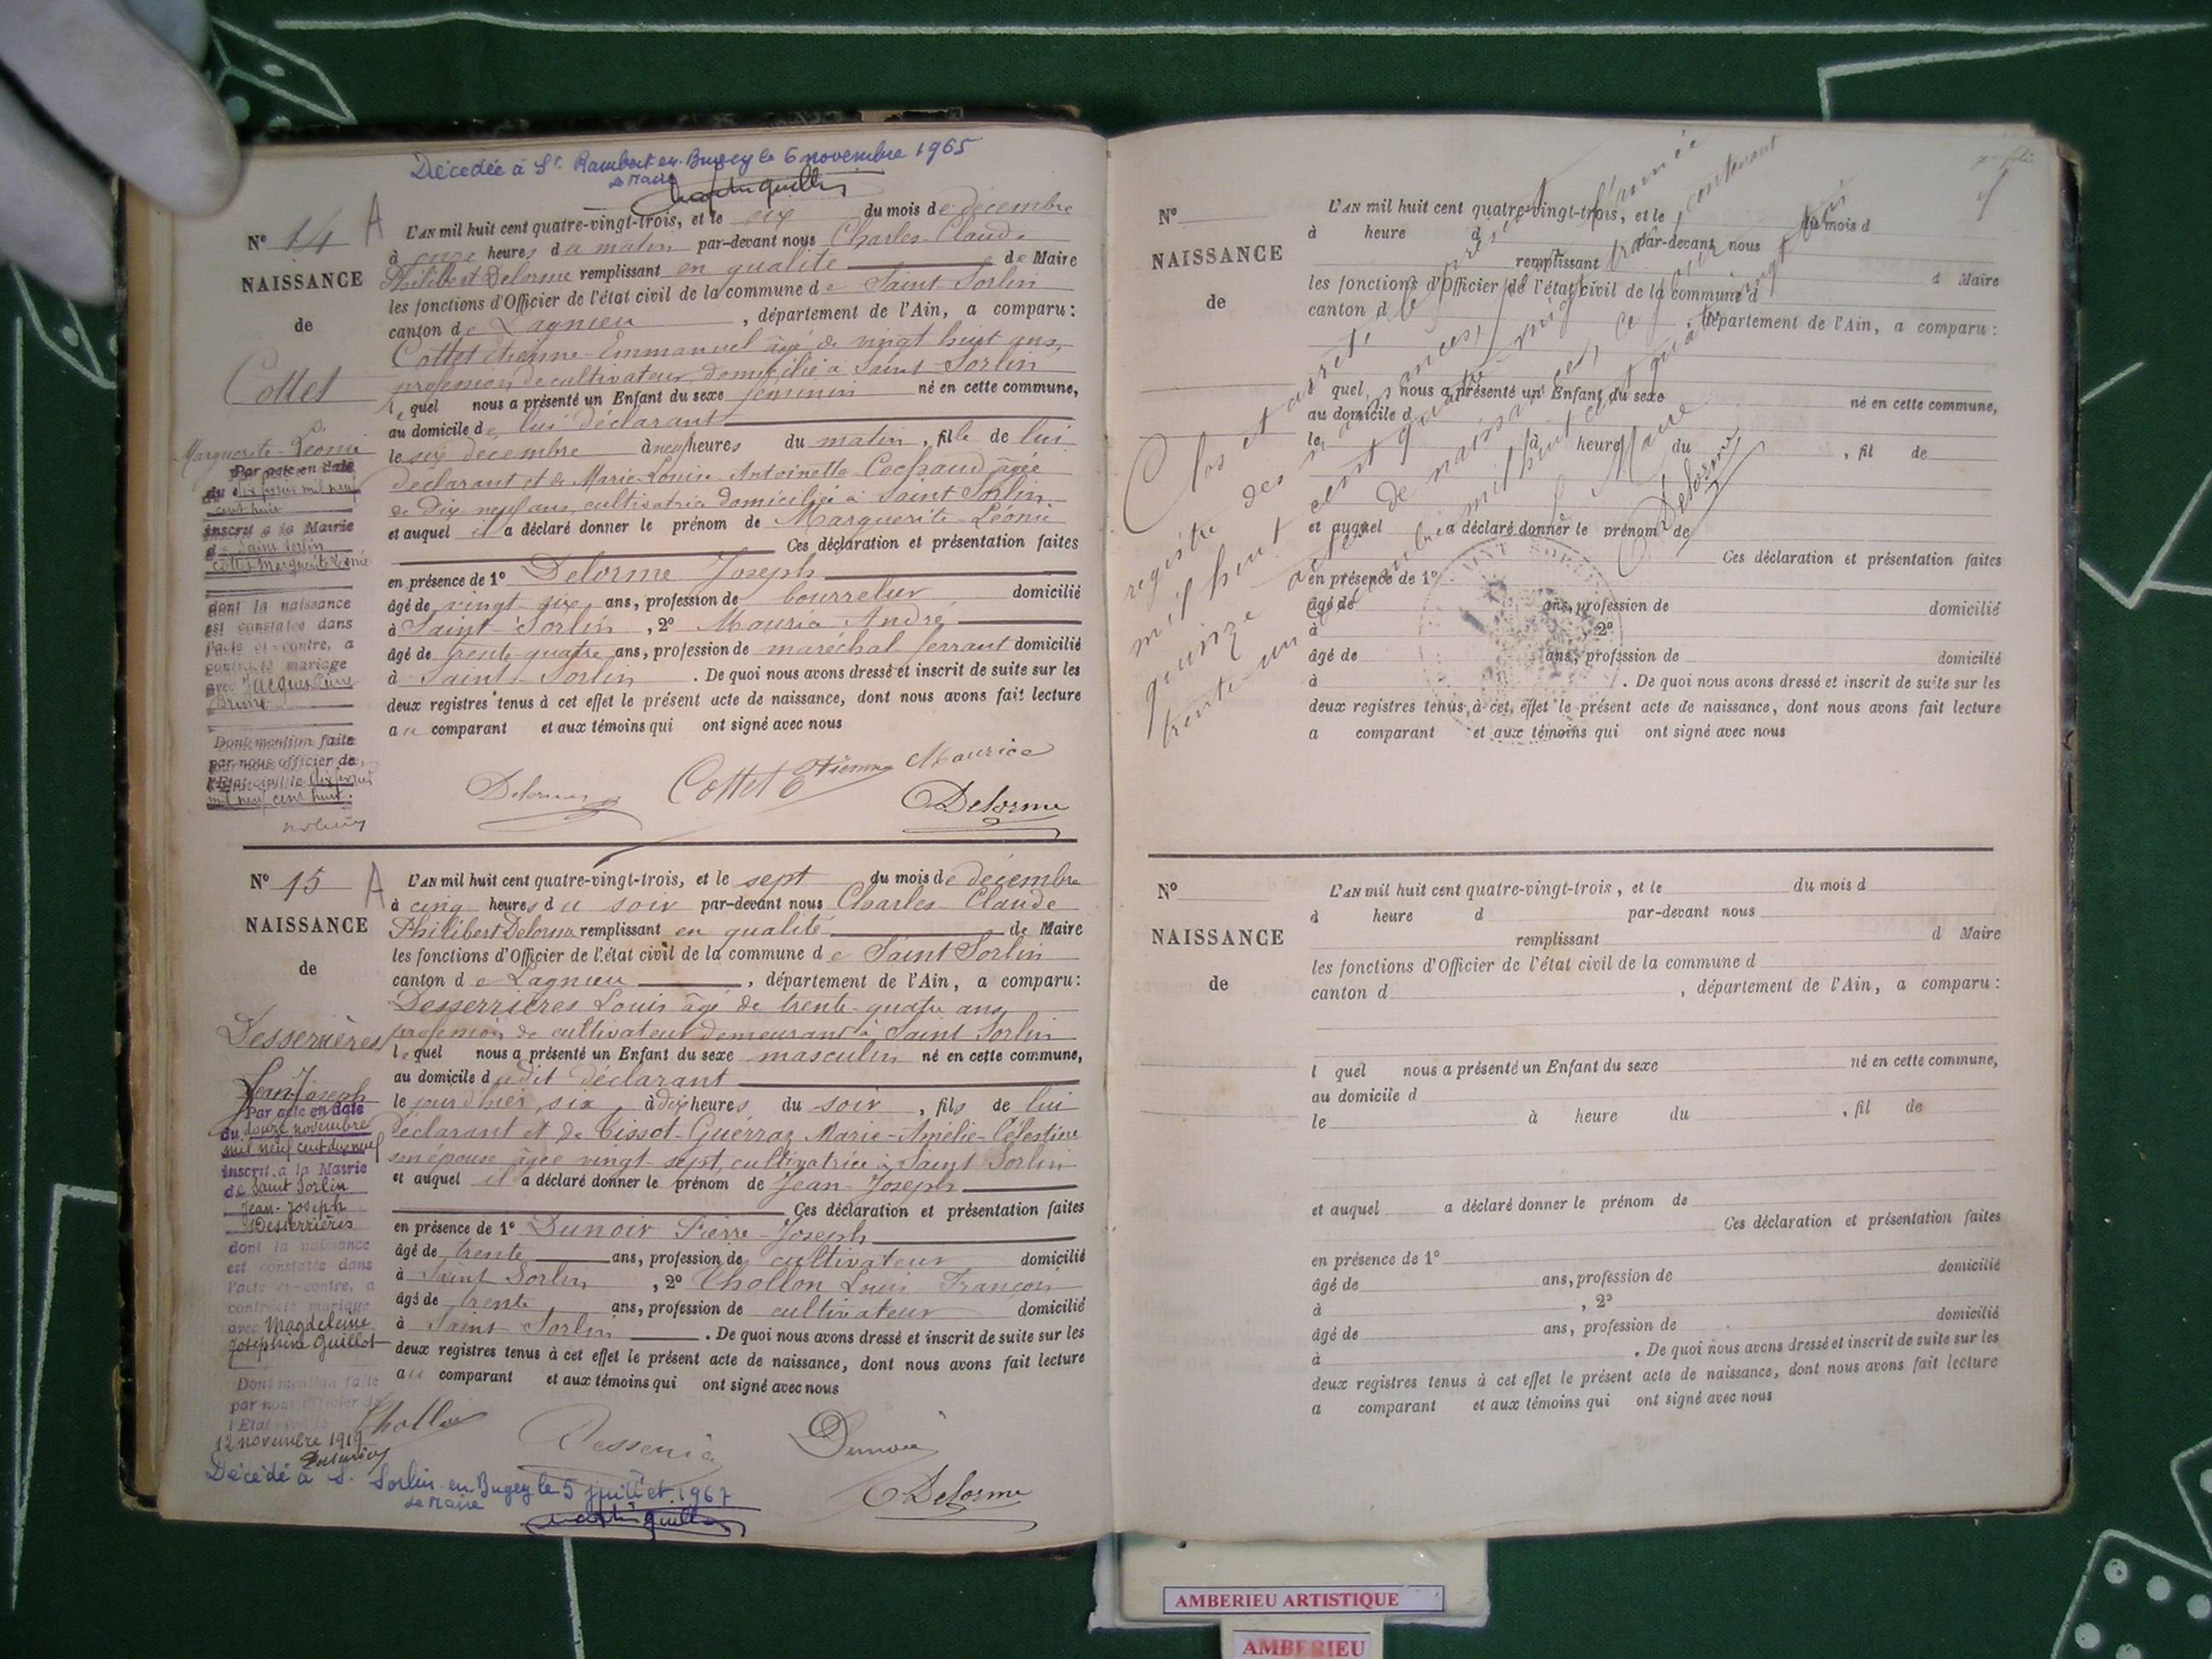 Décédée à St. Rambert en Bugey le 6 novembre 1965
Le Maire
N° 14 A
NAISSANCE
de
Cottet
Marguerite-Léonie
Par acte en date
du dix février mil neuf
cent huit
inscrit à la Mairie
de Saint Sorlin
Cottet Marguerite Léonie
dont la naissance
est constatée dans
l'acte ci-contre, a
contracté mariage
avec Jacques
Brune
Dont mention faite
par nous officier de
l'Etat-civil le dix février
mil neuf cent huit.
L'AN mil huit cent quatre-vingt-trois, et le six du mois de décembre
à onze heures du matin par-devant nous Charles Claude
Philibert Delorme remplissant en qualité de Maire
les fonctions d'Officier de l'état civil de la commune de Saint Sorlin
canton de Lagnieu, département de l'Ain, a comparu:
Cottet Etienne-Emmanuel âgé de vingt huit ans,
profession de cultivateur domicilié à Saint-Sorlin
lequel nous a présenté un Enfant du sexe féminin né en cette commune,
au domicile de lui déclarant
le six décembre à neuf heures du matin, fille de lui
déclarant et de Marie-Louise Antoinette âgée
de Dix neuf ans, cultivatrice domiciliée à Saint Sorlin
et auquel il a déclaré donner le prénom de Marguerite Léonie
Ces déclaration et présentation faites
en présence de 1° Delorme Joseph
âgé de vingt six ans, profession de bourrelier domicilié
à Saint-Sorlin, 2° Maurice André
âgé de trente quatre ans, profession de maréchal ferrant domicilié
à Saint-Sorlin. De quoi nous avons dressé et inscrit de suite sur les
deux registres tenus à cet effet le présent acte de naissance, dont nous avons fait lecture
au comparant et aux témoins qui ont signé avec nous
Delorme Cottet Etienne Maurice
Delorme
N° 15 A
NAISSANCE
de
Desserrières
Jean-Joseph
Par acte en date
du douze novembre
mil neuf cent dix neuf
inscrit à la Mairie
de Saint Sorlin
Jean-Joseph
Desserrières
dont la naissance
est constatée dans
l'acte ci-contre, a
contracté mariage
avec Magdeleine
Joséphine Guillot
Dont mention faite
par nous Officier de
l'Etat civil le
12 novembre 1919
L'AN mil huit cent quatre-vingt-trois, et le sept du mois de décembre
à cinq heures du soir par-devant nous Charles Claude
Philibert Delorme remplissant en qualité de Maire
les fonctions d'Officier de l'état civil de la commune de Saint Sorlin
canton de Lagnieu, département de l'Ain, a comparu:
Desserrières Louis âgé de trente-quatre ans
profession de cultivateur demeurant à Saint Sorlin
lequel nous a présenté un Enfant du sexe masculin né en cette commune,
au domicile dudit déclarant
le jourd'hier six à dix heures du soir, fils de lui
déclarant et de Tissot-Guerraz Marie-Amélie-Célestine
son épouse âgée vingt-sept, cultivatrice à Saint Sorlin
et auquel il a déclaré donner le prénom de Jean-Joseph
Ces déclaration et présentation faites
en présence de 1° Dunoir Pierre-Joseph
âgé de trente ans, profession de cultivateur domicilié
à Saint Sorlin, 2° Chollon Louis François
âgé de trente ans, profession de cultivateur domicilié
à Saint Sorlin. De quoi nous avons dressé et inscrit de suite sur les
deux registres tenus à cet effet le présent acte de naissance, dont nous avons fait lecture
au comparant et aux témoins qui ont signé avec nous
Dunoir
Delorme
Décédé à St. Sorlin en Bugey le 5 juillet 1967
Le Maire
N°
NAISSANCE
de
L'AN mil huit cent quatre-vingt-trois, et le du mois d
à heure d par-devant nous
remplissant d Maire
les fonctions d'Officier de l'état civil de la commune d
canton d , département de l'Ain, a comparu:
l quel nous a présenté un Enfant du sexe né en cette commune,
au domicile d
le à heure du , fil de
et auquel a déclaré donner le prénom de
Ces déclaration et présentation faites
en présence de 1°
âgé de ans, profession de domicilié
à , 2°
âgé de ans, profession de domicilié
à . De quoi nous avons dressé et inscrit de suite sur les
deux registres tenus à cet effet le présent acte de naissance, dont nous avons fait lecture
a comparant et aux témoins qui ont signé avec nous
Clos et arrêté le présent
registre des naissances, pour l'année
mil huit cent quatre-vingt trois, contenant
quinze actes de naissances, ce jour
trente un décembre mil huit cent quatre vingt trois
Le Maire
Delorme
N°
NAISSANCE
de
L'AN mil huit cent quatre-vingt-trois, et le du mois d
à heure d par-devant nous
remplissant d Maire
les fonctions d'Officier de l'état civil de la commune d
canton d , département de l'Ain, a comparu:
l quel nous a présenté un Enfant du sexe né en cette commune,
au domicile d
le à heure du , fil de
et auquel a déclaré donner le prénom de
Ces déclaration et présentation faites
en présence de 1°
âgé de ans, profession de domicilié
à , 2°
âgé de ans, profession de domicilié
à . De quoi nous avons dressé et inscrit de suite sur les
deux registres tenus à cet effet le présent acte de naissance, dont nous avons fait lecture
a comparant et aux témoins qui ont signé avec nous
AMBERIEU ARTISTIQUE
AMBERIEU